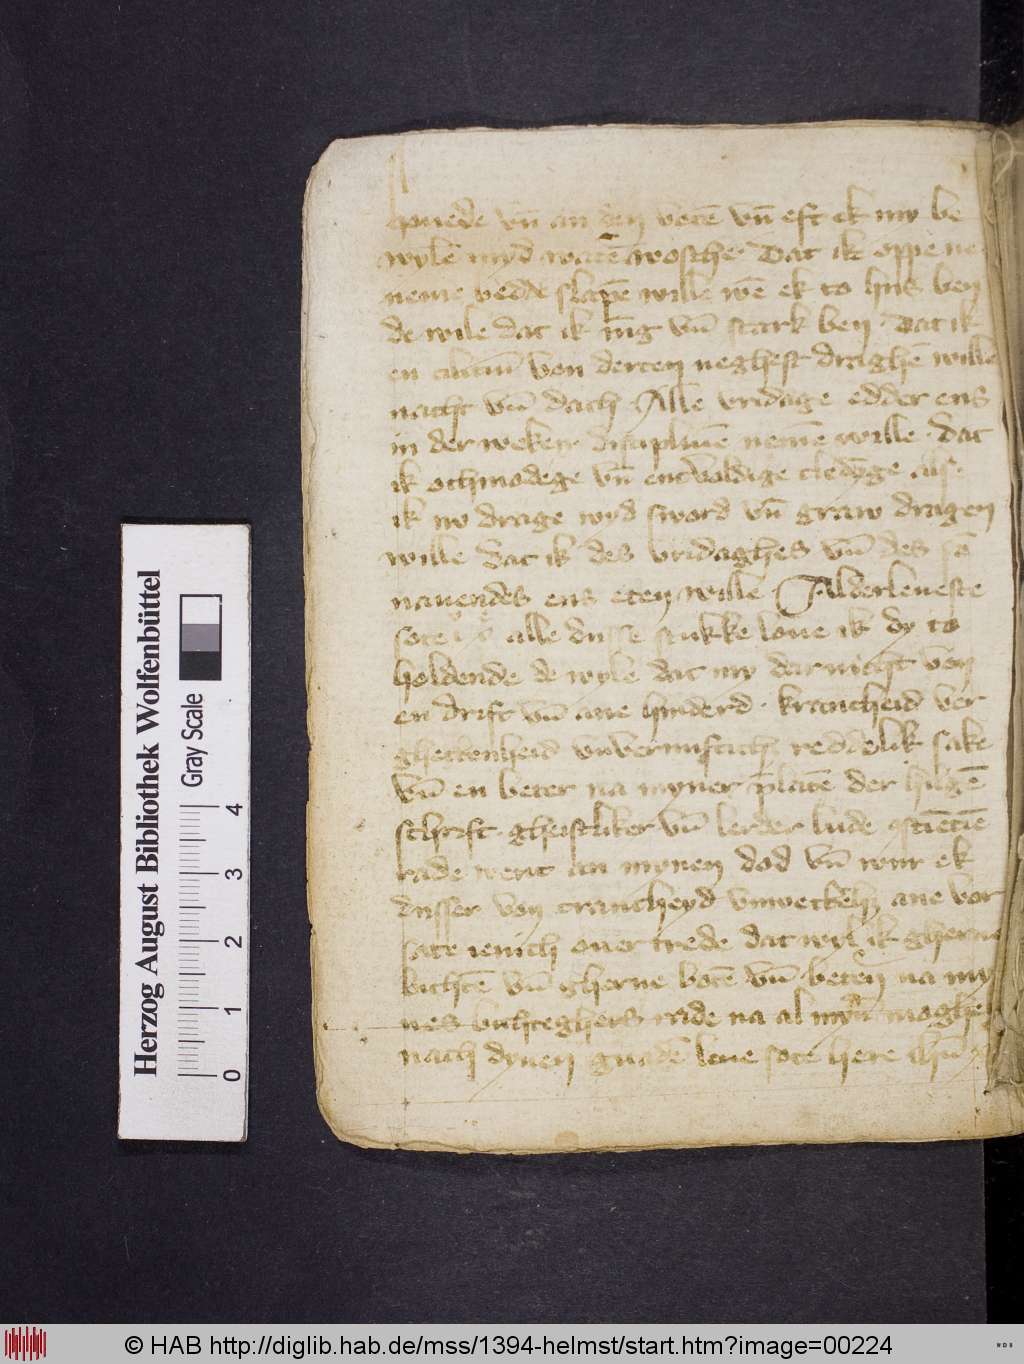 houede vn̄ an den votē vn̄ eft ek my be
wylē myd watē wosche · Dat ik oppe ne
neme bedde slapē wille wē ek to hus ben
de wile dat ik iūg vn̄ stark ben · Dat ik
en van derten neghest draghē wille
nacht vn̄ dach · Alle vridage edder ens
in der weken disciplinē nemē wille · Dat
ik othmodege vn̄ entvoldige cledȳge als
ik nv drage wyd sword vn̄ graw dragen
wille Dat ik des vridaghes vn̄ des sō
nauendes ens eten wille · Alderleueste
sote alle dusse stukke loue ik dy to
holdende de wyle dat my dar nicht van
en drift vn̄ ane hinderd · krancheid ver
ghettenheid vnvernuftich reddelik sake
vn̄ en beter na myner p̄latē der hilgē
schrift · gheistliker vn̄ lerder lude
rade went an mynen dod vn̄ wur ek
dusser van crancheyd ane vor
sate ienich ouer trede dat wyl ik gherne
bichtē vn̄ gherne botē vn̄ beten na my
nes bichteghers rade na al myn moghen
nach dynen gnadē leue sote here ihū
Herzog August Bibliothek Wolfenbüttel
Gray Scale
0 1 2 3 4
© HAB http://diglib.hab.de/mss/1394-helmst/start.htm?image=00224